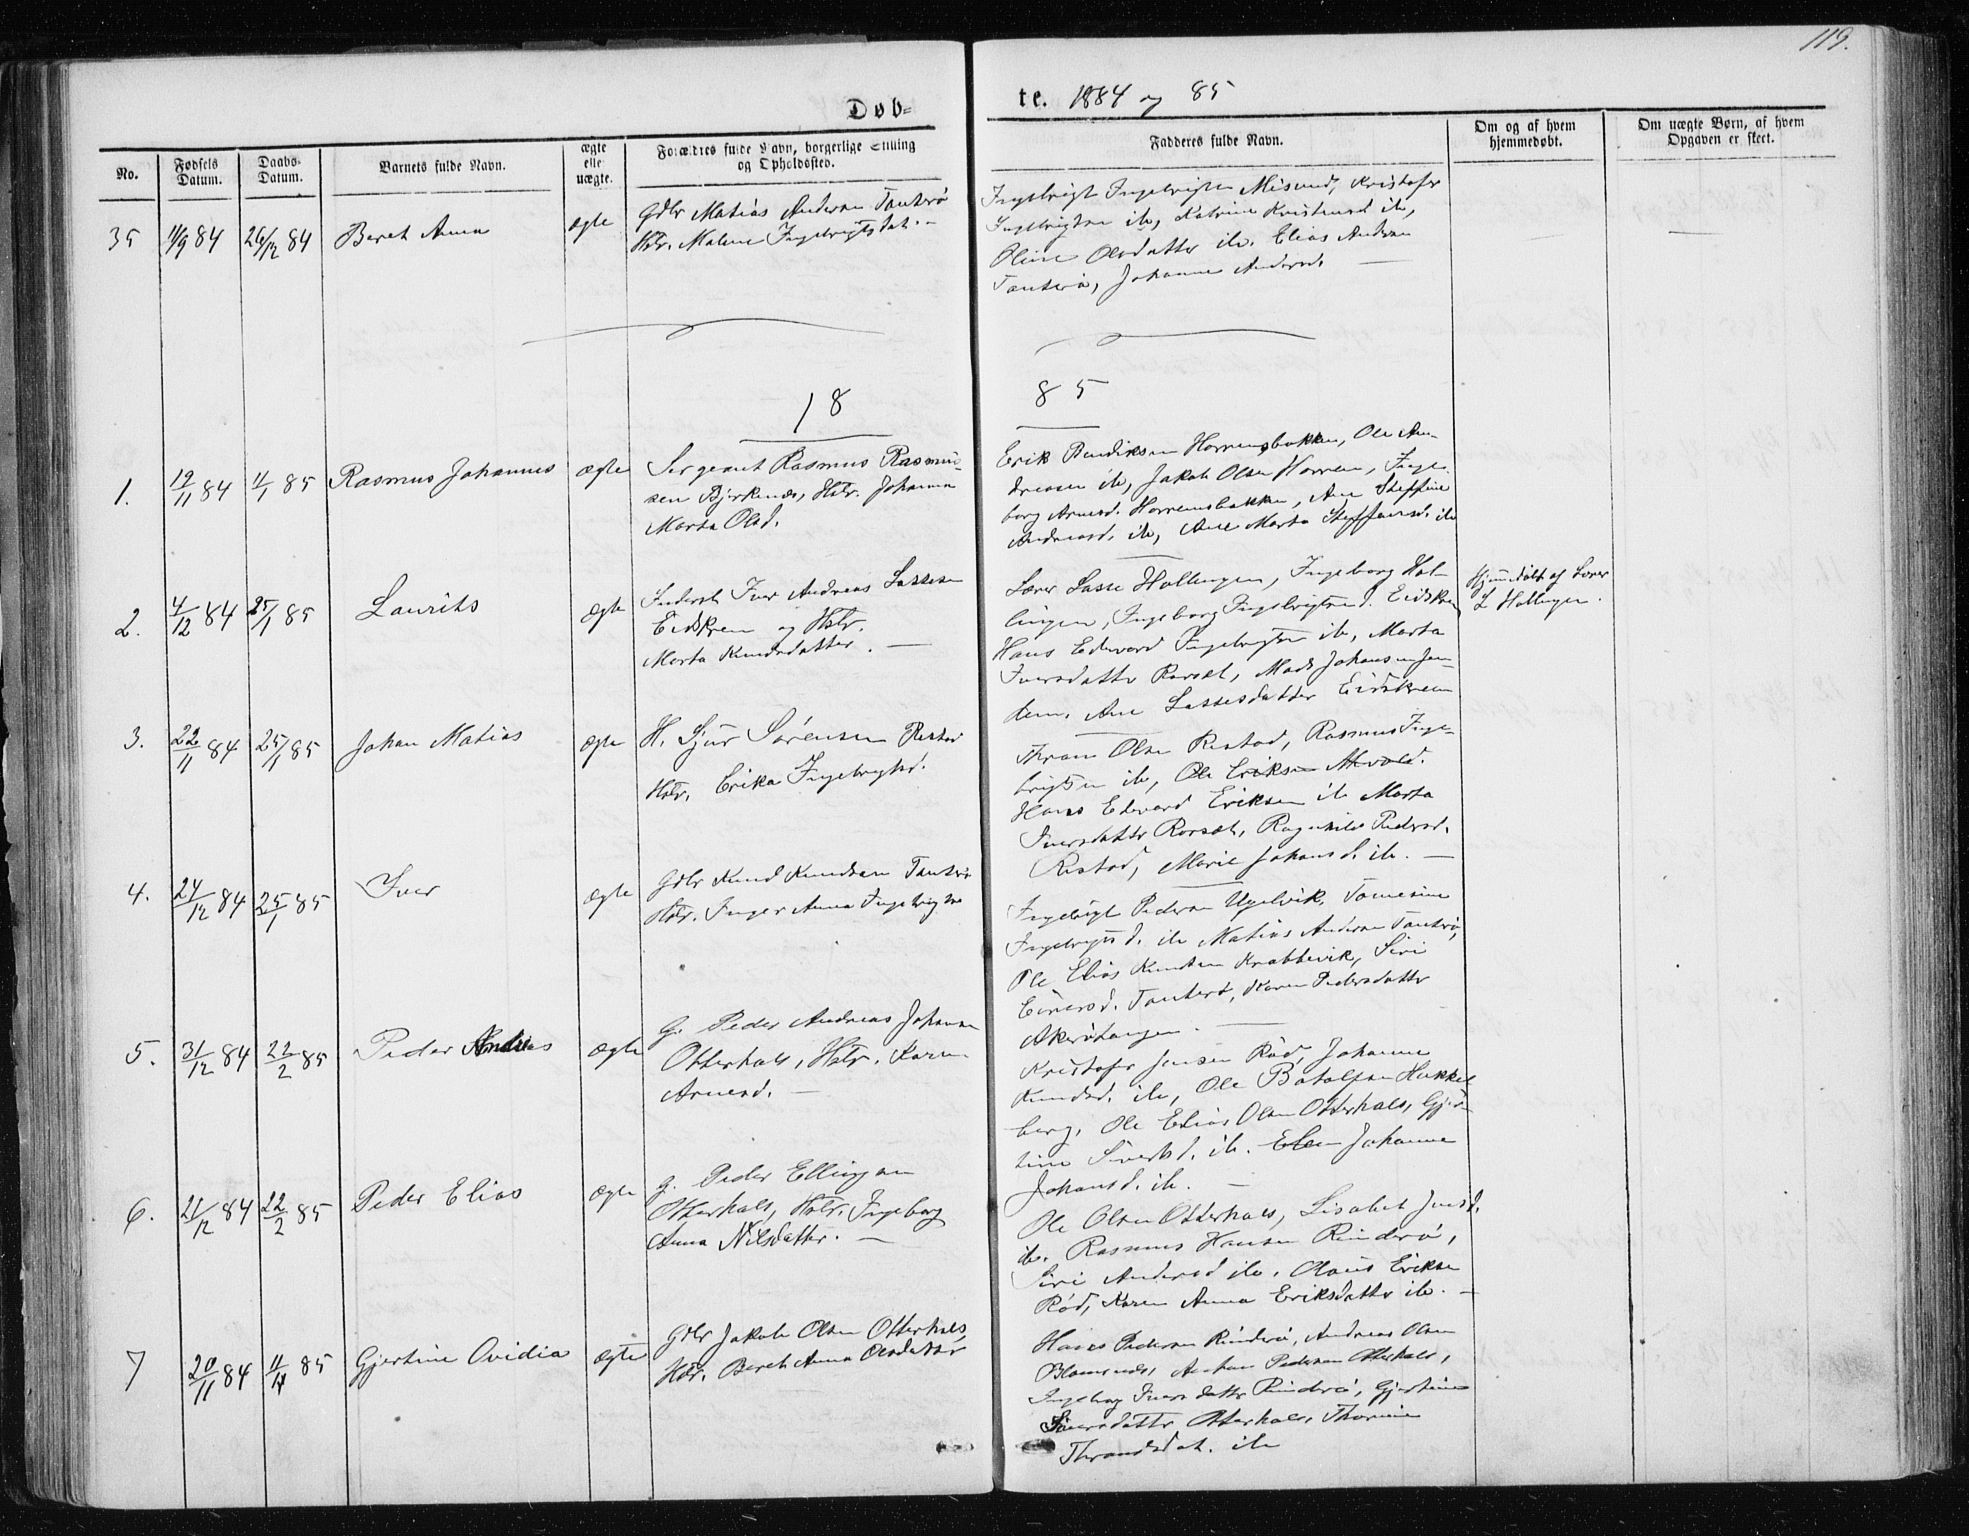 119.
Døb-
te. 1884 og 85
No.
Fødsels
Datum.
Daabs-
Datum.
Barnets fulde Navn.
ægte
elle
uægte.
Forældres fulde Navn, borgerlige Stilling
og Opholdssted.
Fadderes fulde Navn.
Om og af hvem
hjemmedøbt.
Om uægte Børn, af hvem
Opgaven er skeet.
35
11/9 84
26/12 84
Beret Anna
ægte
Gdbr Matias Andersen Tauterø
Hstr. Malene Ingebrigtsdat. -
Ingebrigt Ingebrigtsen Misund, Kristofer
Ingebrigtsen ib, Katrine Kristensd ib,
Oline Olsdatter ib. Elias Andersen
Tauterø, Johanne Andersd. —
18
85
1.
12/11 84
11/1 85
Rasmus Johannes
ægte
Sergeant Rasmus Rasmus-
sen Bjerknes, Hstr. Johanna
Marta Olsd.
Erik Bendiksen Horremsbakken, Ole An-
dreasen ib, Jakob Olsen Horrem, Inge-
borg Arnesd. Horremsbakken, Ane Steffine
Andreasd. ib, Ane Marta Steffensd. ib
2.
4/12 84
25/1 85
Laurits
ægte
Inderst Iver Andreas Lassesen
Eidskrem og Hstr.
Marta Knudsdatter. —
Lærer Lasse Hollingen, Ingeborg Hol-
lingen, Ingeborg Ingebrigtsd. Eidskrem
Hans Edvard Ingebrigtsen ib, Marta
Iversdatter Rorset, Mads Johansen Jen-
dem. Ane Lassesdatter Eidskrem
Hjemmedøbt af Lærer
L Hollingen.
3.
22/11 84
25/1 85
Johan Matias
ægte
H. Sjur Sørensen Ristad
Hstr. Erika Ingebrigtsd.
Thron Olsen Ristad, Rasmus Inge-
brigtsen ib, Ole Eriksen
Hans Edvard Eriksen ib Marta
Iversdatter Rorset, Ragnhild Pedersd.
Ristad, Marie Johansd. ib. —
4.
24/12 84
25/1 85
Iver
ægte
Gdbr Knud Knudsen Tauterø
Hstr. Inger Anna Ingebrigtsd
Ingebrigt Pedersen Ugelvik, Tomesine
Ingebrigtsd. ib Matias Andersen Tauterø,
Ole Elias Knudsen Krabbevik, Siri
Einersd. Tauterø, Karen Pedersdatter
Akerøtangen. —
5.
31/12 84
22/2 85
Peder Andreas
ægte
G. Peder Andreas Johansen
Otterhals, Hstr. Karen
Arnesd. —
Kristofer Jensen Rød, Johanne
Knudsd. ib, Ole Botolfsen Hukkel-
berg, Ole Elias Olsen Otterhals, Gjer-
tine Sivertsd. ib. Elen Johanne
Johansd. ib. —
6.
21/12 84
22/2 85
Peder Elias
ægte
g. Peder Ellingsen
Otterhals, Hstr. Ingeborg
Anna Nilsdatter. —
Ole Olsen Otterhals, Lisabet Jensd.
ib. Rasmus Hansen Rinderø,
Siri Andersd ib. Olaus Eriksen
Rød, Karen Anna Eriksdatter ib. —
7
20/11 84
11/4 85
Gjertine Ovidia
ægte
Gdbr Jakob Olsen Otterhals,
Hstr. Beret Anna Olsdatter
Hans Pedersen Rinderø, Andreas Olsen
Blomsnes, Anton Pedersen Otterhals,
Ingeborg Iversdatter Rinderø, Gjertine
Siversdatter Otterhals, Thomine
Thronsdat. ib